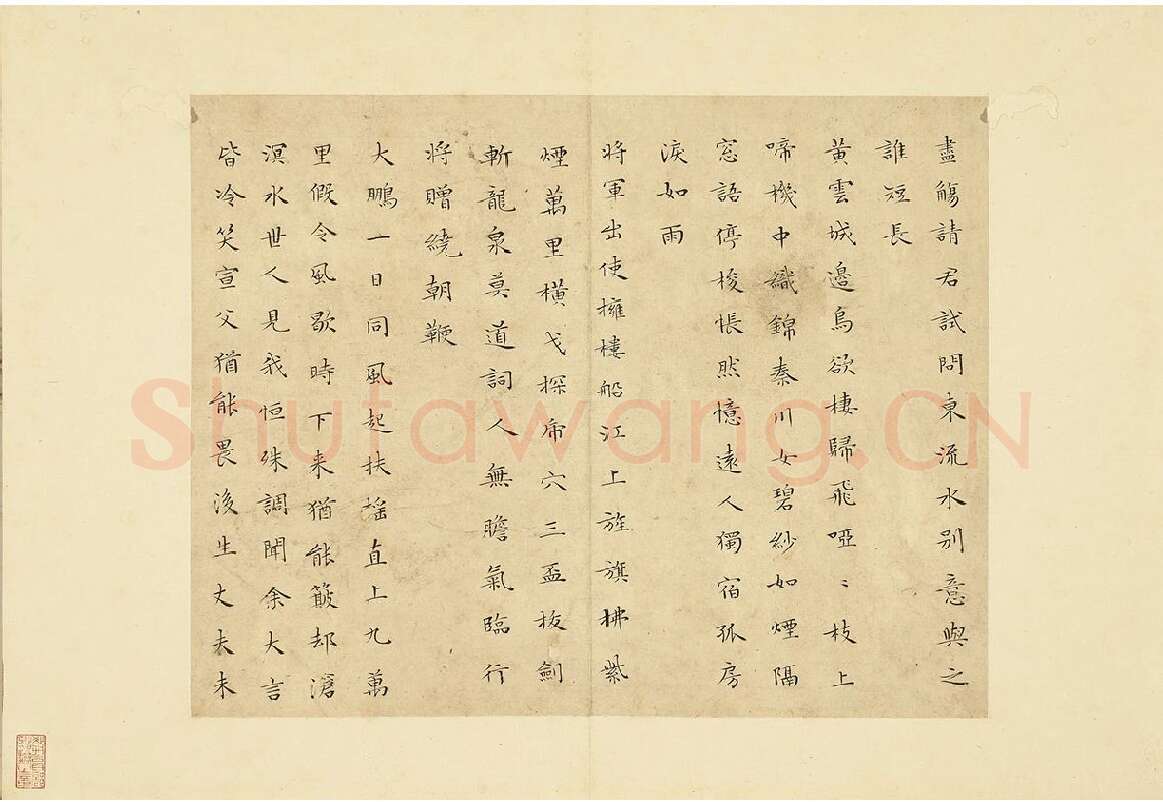 盡觴請君試問東流水別意與之
誰短長
黃雲城邊烏欲棲歸飛啞〻枝上
啼機中織錦秦川女碧紗如煙隔
窓語停梭悵然憶遠人獨宿孤房
淚如雨
將軍出使擁樓船江上旌旗拂紫
煙萬里橫戈探帍穴三盃拔劍
斬龍泉莫道詞人無膽氣臨行
將贈繞朝鞭
大鵬一日同風起扶搖直上九萬
里假令風歇時下来猶能簸却滄
溟水世人見我恒殊調聞余大言
皆冷笑宣父猶能畏後生丈夫未
Shufawang.CN